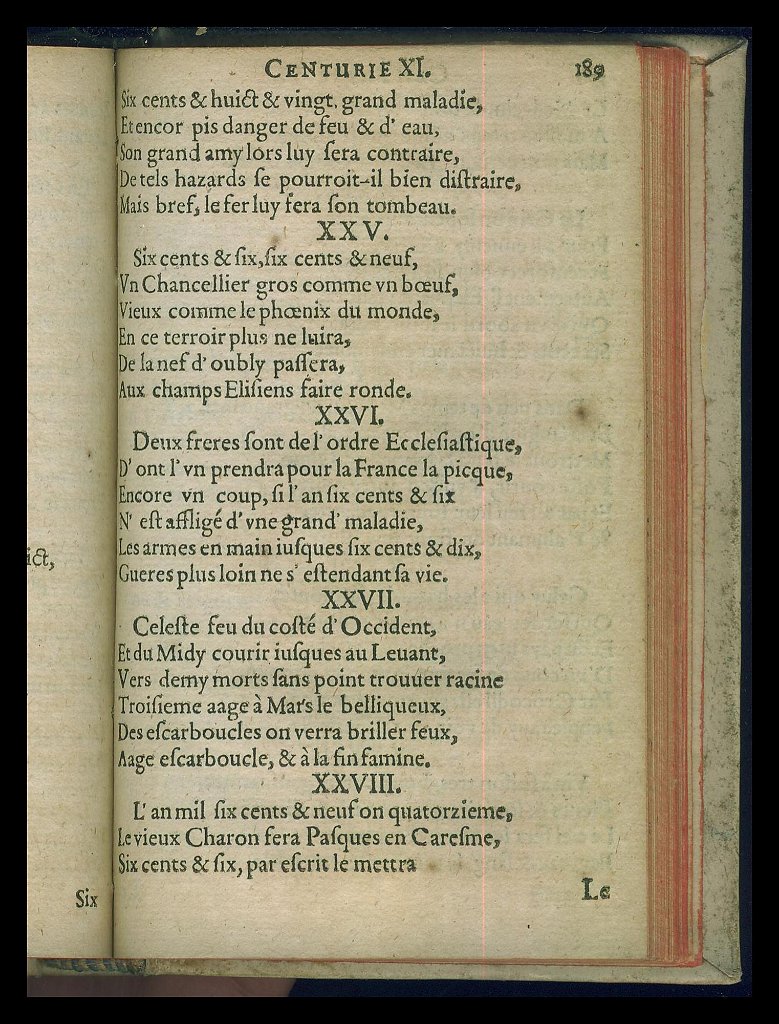 CENTURIE XI. 189
Six cents & huict & vingt, grand maladie,
Et encor pis danger de feu & d' eau,
Son grand amy lors luy ſera contraire,
De tels hazards ſe pourroit-il bien diſtraire,
Mais bref, le fer luy fera ſon tombeau.
XXV.
Six cents & ſix, ſix cents & neuf,
Vn Chancellier gros comme vn bœuf,
Vieux comme le phœnix du monde,
En ce terroir plus ne luira,
De la nef d' oubly paſſera,
Aux champs Eliſiens faire ronde.
XXVI.
Deux freres ſont de l' ordre Eccleſiaſtique,
D' ont l' vn prendra pour la France la picque,
Encore vn coup, ſi l' an ſix cents & ſix
N' eſt affligé d' vne grand' maladie,
Les armes en main iuſques ſix cents & dix,
Gueres plus loin ne s' eſtendant ſa vie.
XXVII.
Celeſte feu du coſté d' Occident,
Et du Midy courir iuſques au Leuant,
Vers demy morts ſans point trouuer racine
Troiſieme aage à Mars le belliqueux,
Des eſcarboucles on verra briller feux,
Aage eſcarboucle, & à la fin famine.
XXVIII.
L' an mil ſix cents & neuf on quatorzieme,
Le vieux Charon fera Paſques en Careſme,
Six cents & ſix, par eſcrit le mettra
Le
ict,
Six